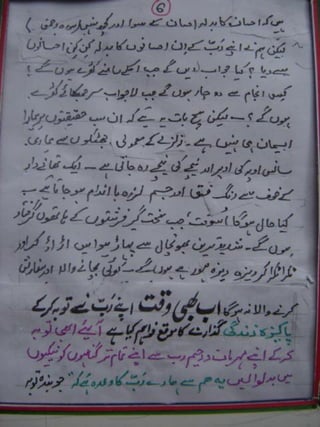 6
ہیں کہ احسان کا بدلہ احسان کے سوا اور کچھ نہیں
لیکن ہم نے اپنے رَبّ کے اِن احسانوں کا بدلہ کن کن احسانوں
سے دیا؟ کیا جواب دیں گے جب اُسکے سامنے کھڑے ہوں گے؟
کیسی انجام سے دو چار ہوں گے جب لاجواب سر جھکائے کھڑے
ہوں گے؟ - لیکن سچ بات یہ ہے کہ ان سب حقیقتوں پر ہمارا
ایمان ہی نہیں ہے - زلزلے کے معمولی جھٹکوں سے ہماری
سانس اوپر کی اوپر اور نیچے کی نیچے رہ جاتی ہے - ایک تھانیدار
کے خوف سے رنگ فق اور جسم لرزہ باندام ہو جاتا ہے
کیا حال ہوگا اُسوقت جب سخت گیر فرشتوں کے ہاتھوں گرفتار
ہوں گے - شدید ترین بھونچال سے پہاڑ ہوا میں اڑ اڑ کر اور
ٹکرا ٹکرا کر ریزہ ریزہ ہو رہے ہوں گے - کوئی بچانے والا اور سفارش
کرنے والا نہ ہوگا اب بھی وقت اپنے رَبّ نے توبہ کرکے
پاکیزہ زندگی گذارنے کا موقع فراہم کیا ہے آئیے ابھی توبہ
کرکے اپنے مہربان و رحیم رب سے اپنے تمام تر گناہوں کو نیکیوں
میں بدلوا لیں یہ ہم سے ہمارے رَبّ کا وعدہ ہے کہ "جو بندہ توبہ